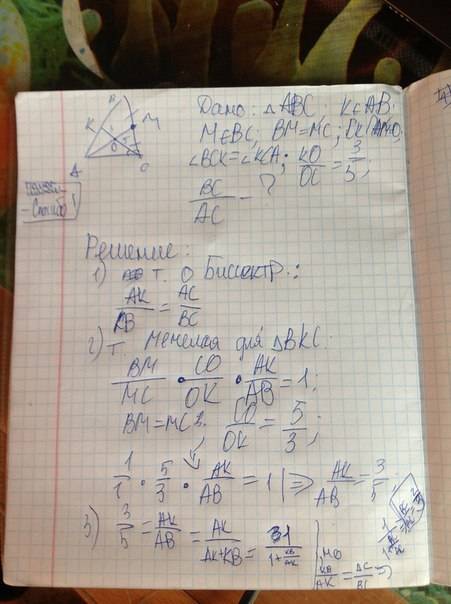 B
K
M
O
A
C
Дано: △ABC; K∈AB;
M∈BC; BM=MC; CK∩AM=O;
∠BCK=∠KCA; KO/OC = 3/5;
BC/AC - ?
Способ 1
Решение:
1) т. о биссектр.:
AK/KB = AC/BC
2) т. Менелая для △BKC:
BM/MC · CO/OK · AK/AB = 1;
BM=MC; CO/OK = 5/3;
1/1 · 5/3 · AK/AB = 1 | ⇒ AK/AB = 3/5
3) 3/5 = AK/AB = AK/AK+KB = 1/1+KB/AK
, но
KB/AK =